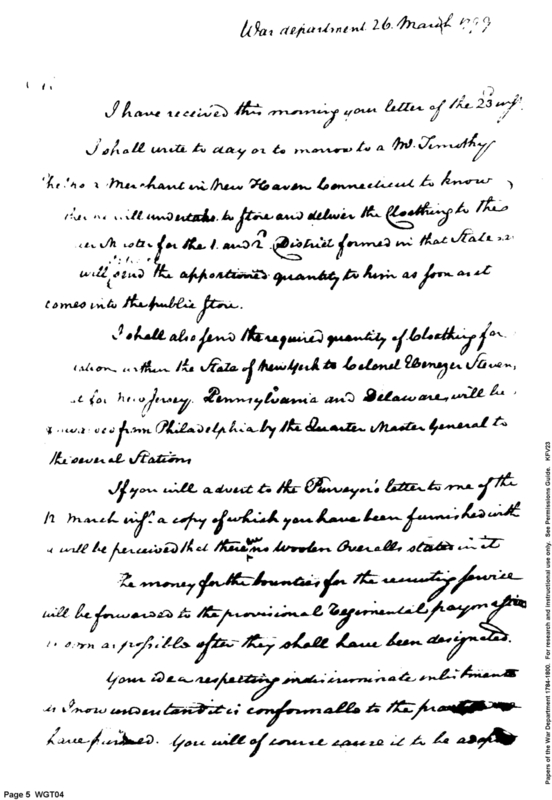 War department 26. March 1799
I have received this morning your letter of the 23 inst.
I shall write to day or to morrow to a Mr. Timothy
Merchant in New Haven Connecticut to know
he will undertake to store and deliver the Cloathing to the
Master for the 1. and 2d. District formed in that State
will send the apportioned quantity to him as soon as it
comes into the public store.
I shall also send the required quantity of Cloathing for
within the State of New York to Colonel Ebenezer Stevens,
for New Jersey, Pennsylvania and Delaware, will be
from Philadelphia by the Quarter Master General to
the several Stations
If you will advert to the Purveyor's letter to me of the
12 March inst. a copy of which you have been furnished with
will be perceived that there no Woolen Overalls stated in it
The money for the bounties for the recruiting service
will be forwarded to the provisional Regimental paymasters
as soon as possible after they shall have been designated.
Your idea respecting indiscriminate inlistments
as I now understand it is conformable to the
have pursued. You will of course cause it to be
Page 5 WGT04
Papers of the War Department 1784-1800. For research and instructional use only. See Permissions Guide. KFV23